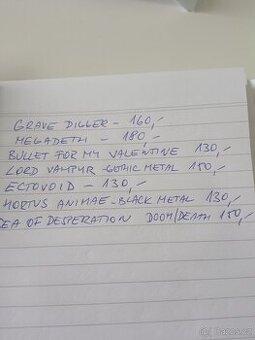 GRAVE DIGGER - 160,-
MEGADETH - 180,-
BULLET FOR MY VALENTINE 130,-
LORD VAMPYR - GOTHIC METAL 150,-
ECTOVOID - 130,-
HORTUS ANIMAE - BLACK METAL 130,-
SEA OF DESPERATION DOOM/DEATH 150,-